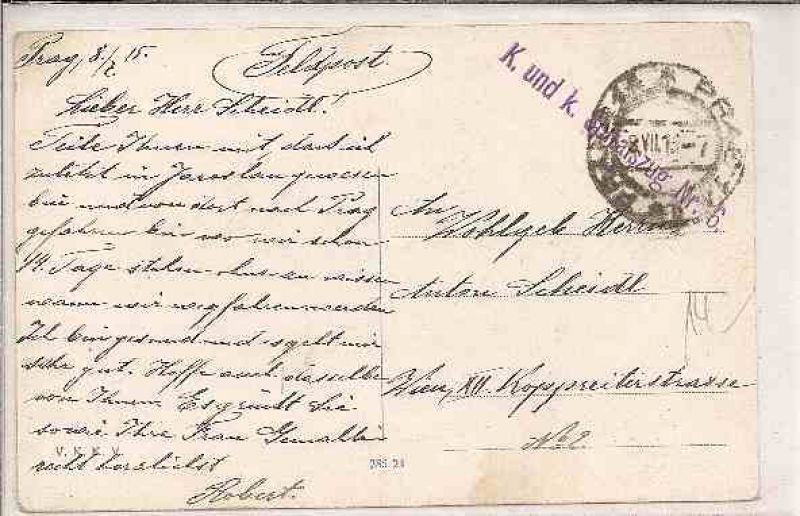 Prag, 8./7. 15.
Feldpost.
Lieber Herr Scheidl!
Teile Ihnen mit dass ich
zuletzt in Jaroslau gewesen
bin und von dort nach Prag
gefahren bin wo wir schon
14. Tage stehen ohne zu wissen
wann wir wegfahren werden
Ich bin gesund und es geht mir
sehr gut. Hoffe auch dasselbe
von Ihnen. Es grüßt Sie
sowie Ihre Frau Gemahlin
recht herzlichst
Robert.
K. und k. Spitalszug Nr. 6.
PRAG
VII.15
An
Wohlgeb Herrn
Anton Scheidl
Wien, XII. Koppreiterstrasse
No 2.
14
285 24